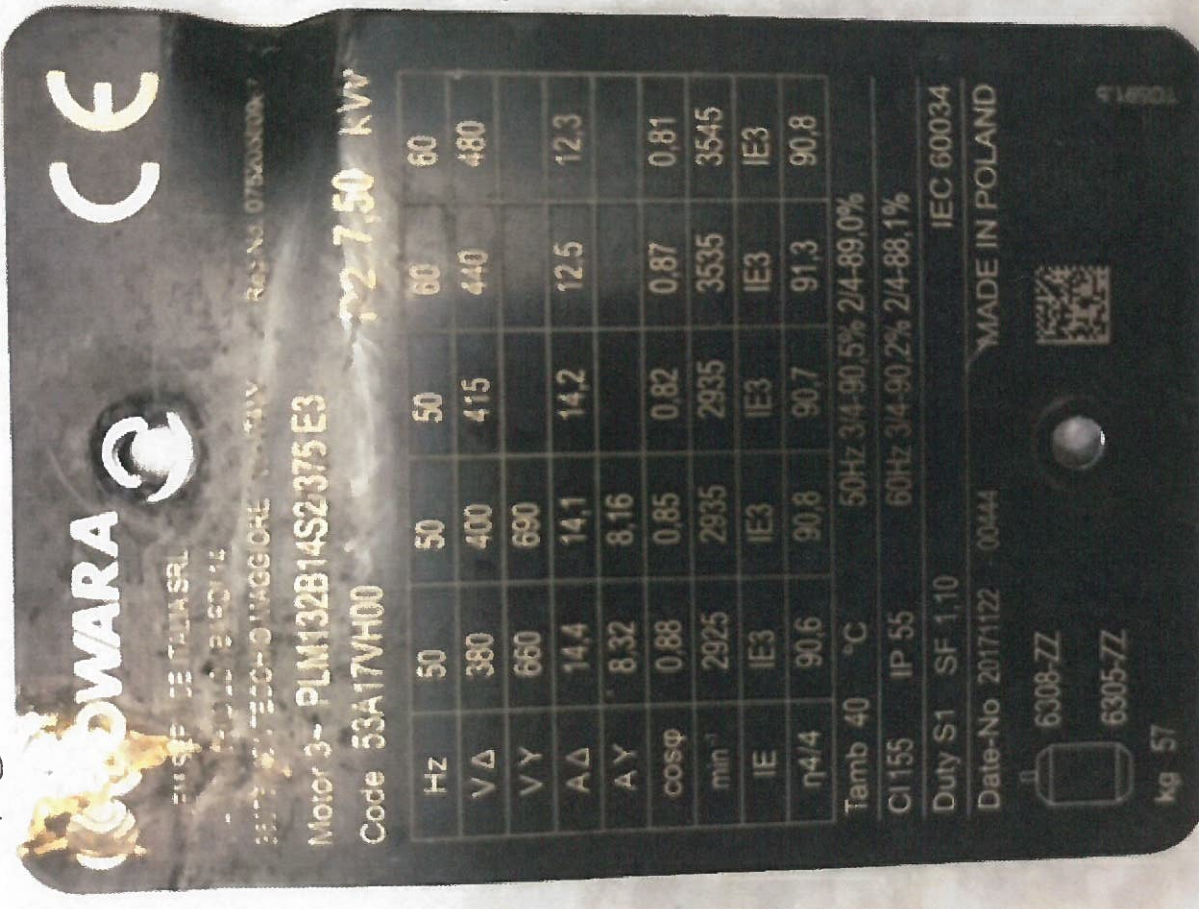 LOWARA
CE
Motor 3~ PLM132B14S2/375 E3
Code 53A17VH00 P2 7,50 kW
Hz 50 50 50 60 60
V Δ 380 400 415 440 480
V Y 660 690
A Δ 14,4 14,1 14,2 12.5 12,3
A Y 8,32 8,16
cosφ 0,88 0,85 0,82 0,87 0,81
min⁻¹ 2925 2935 2935 3535 3545
IE IE3 IE3 IE3 IE3 IE3
η4/4 90,6 90,8 90,7 91,3 90,8
Tamb 40 °C 50Hz 3/4-90,5% 2/4-89,0%
Cl 155 IP 55 60Hz 3/4-90,2% 2/4-88,1%
Duty S1 SF 1,10 IEC 60034
Date-No 20171122 00444 MADE IN POLAND
6308-ZZ
6305-ZZ
kg 57